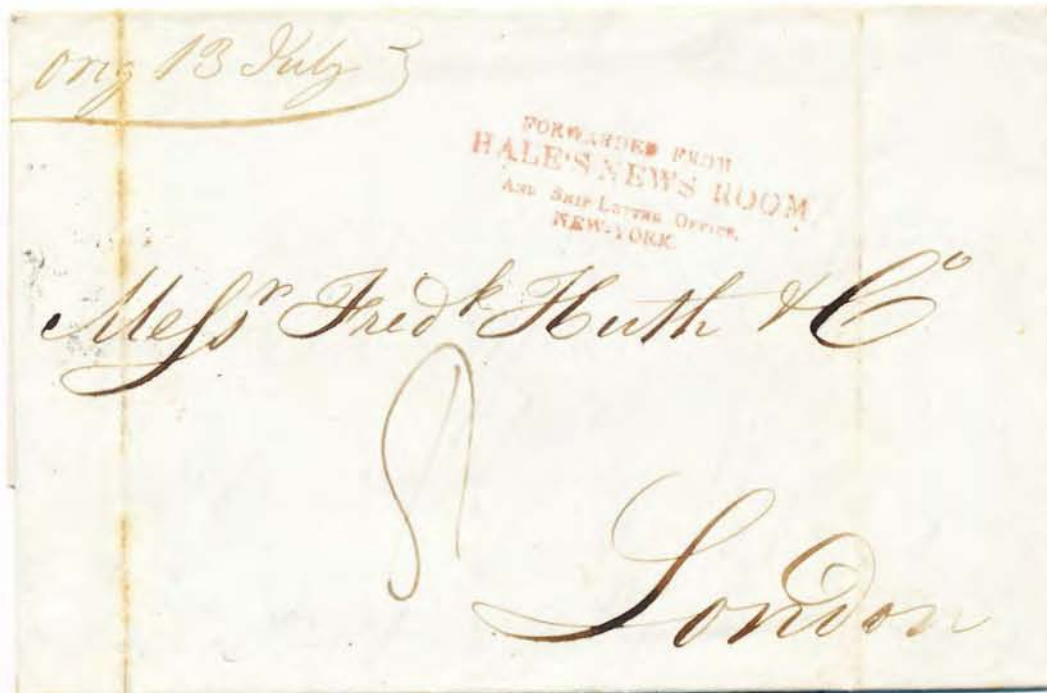 orig 13 July
FORWARDED FROM
HALE'S NEWS ROOM
AND SHIP LETTER OFFICE,
NEW-YORK.
Messr Fredk Huth & Co
8
London